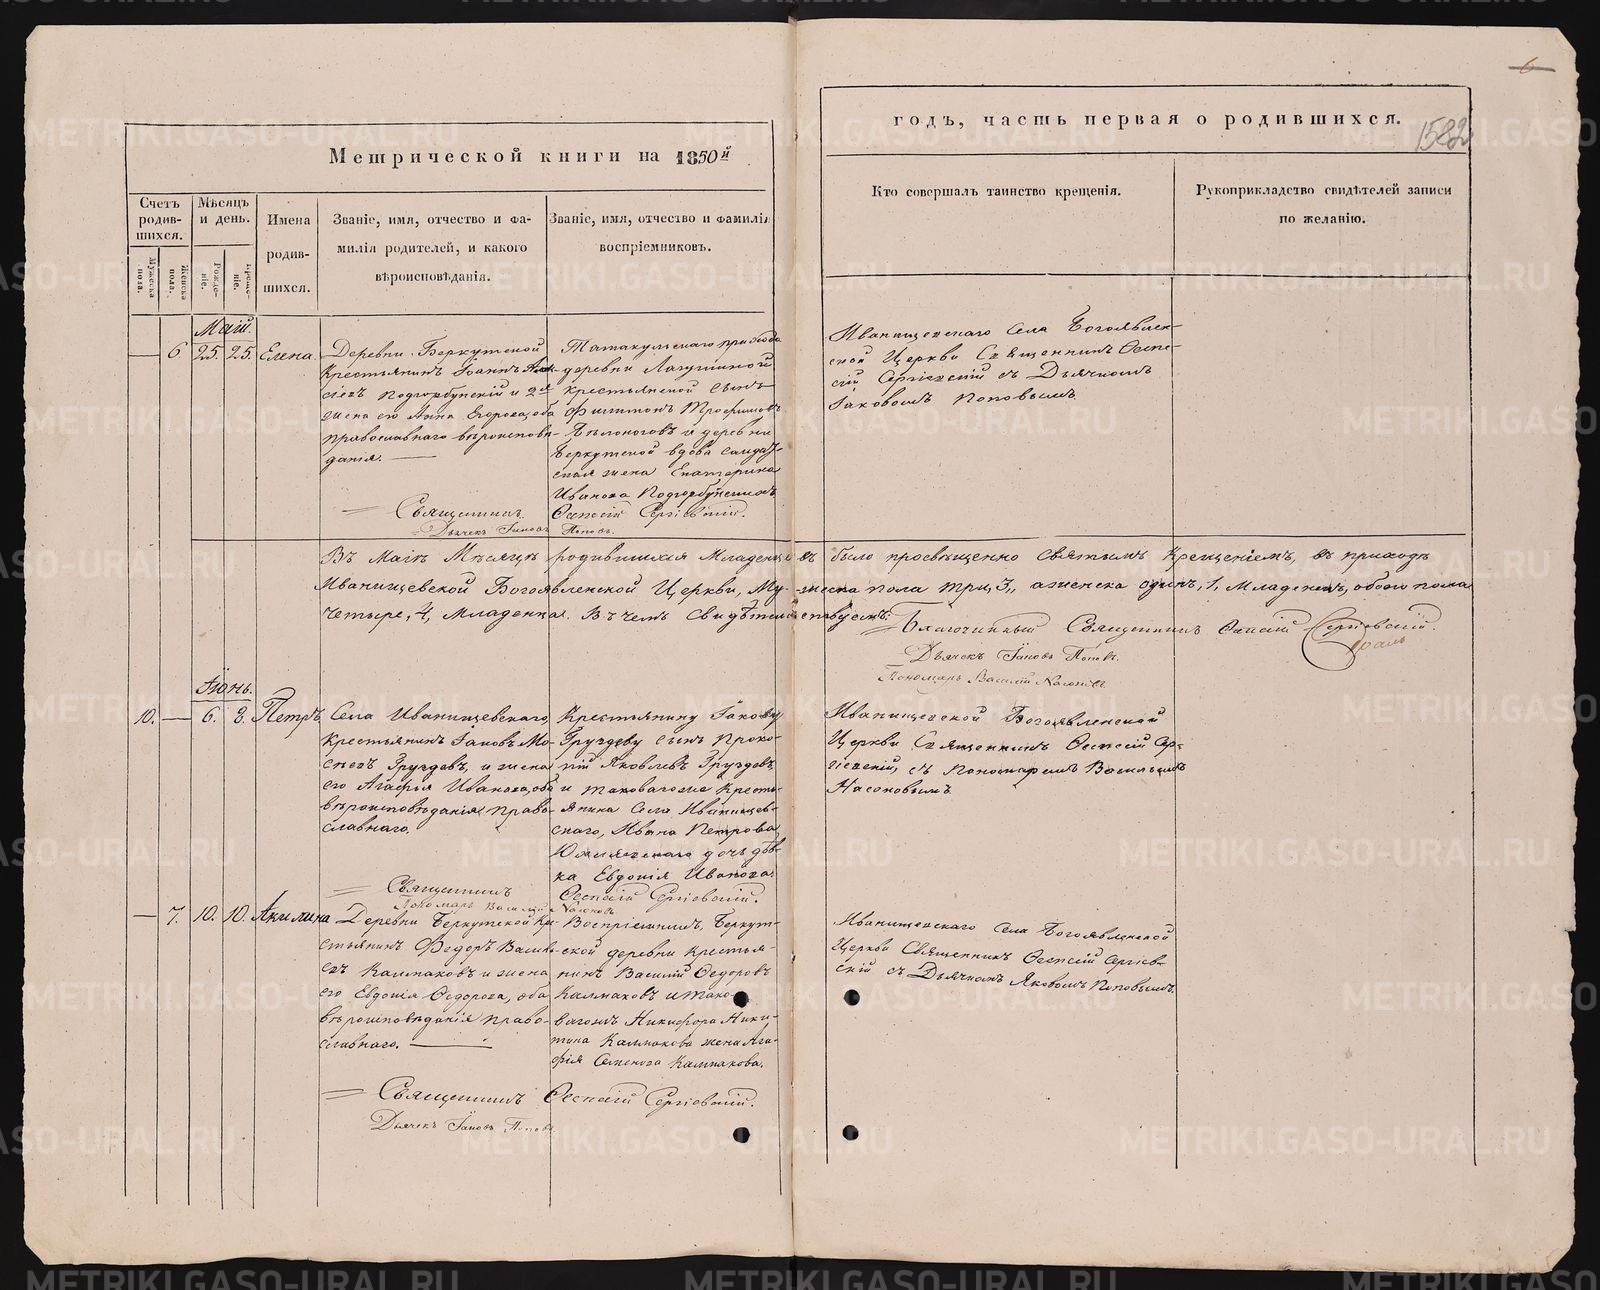 6
Метрической книги на 1850й
годъ, часть первая о родившихся.
1582
Счетъ родив-шихся.
Мужеска пола.
Женска пола.
Мѣсяцъ и день.
Рожде-нія.
Креще-нія.
Имена
родив-
шихся.
Званіе, имя, отчество и фа-
милія родителей, и какого
вѣроисповѣданія.
Званіе, имя, отчество и фамилія
воспріемниковъ.
Кто совершалъ таинство крещенія.
Рукоприкладство свидѣтелей записи
по желанію.
Май.
6 25. 25. Елена.
Деревни Беркутской
Крестьянинъ Іоаннъ
Подгорбунскій и 2я
жена его Анна Егорова, оба
православнаго вѣроисповѣ-
данія.
Священникъ
Дьячекъ Іаковъ Поповъ.
Татакульскаго прихода
деревни
крестьянской сынъ
Филимонъ Трофимовъ
Бѣлоноговъ и деревни
Беркутской вдова солдат-
ская жена Екатерина
Иванова
Ѳеспесій Сергіевскій.
Иванищевскаго Села Богоявлен-
ской Церкви Священникъ Ѳеспе-
сій Сергіевскій съ Дьячкомъ
Іаковомъ Поповымъ.
Въ Маіѣ Мѣсяцѣ родившихся Младенцевъ было просвѣщенно Святымъ Крещеніемъ, въ приходѣ
Иванищевской Богоявленской Церкви, Мужеска пола три, 3, а женска одинъ, 1, Младенецъ, обоего пола
четыре, 4, Младенца. Въ чемъ Свидѣтельствуемъ:
Благочинный Священникъ Ѳеспесій Сергіевскій.
Дьячекъ Іаковъ Поповъ.
Пономарь Василій Насоновъ
Іюнь.
10. 6. 8. Петръ
Села Иванищевскаго
Крестьянинъ Іаковъ Мо-
сѣевъ Груздевъ, и жена
его Агафія Иванова, оба
вѣроисповѣданія Право-
славнаго.
Священникъ
Пономарь Василій Насоновъ
Крестьянину Іакову
Груздеву сынъ Проко-
пій Яковлевъ Груздевъ
и таковагоже Кресть-
янина Села Иванищев-
скаго, Ивана Петрова
дочь дѣв-
ка Евдокія Иванова.
Ѳеспесій Сергіевскій.
Иванищевской Богоявленской
Церкви Священникъ Ѳеспесій Сер-
гіевскій, съ Пономаремъ Васильемъ
Насоновымъ.
7. 10. 10. Акилина
Деревни Беркутской Кре-
стьянинъ Федоръ Василь-
евъ Калмаковъ и жена
его Евдокія Ѳедорова, оба
вѣроисповѣданія право-
славнаго.
Священникъ Ѳеспесій Сергіевскій.
Дьячекъ Іаковъ Поповъ.
Воспріемникъ, Беркут-
ской деревни Крестья-
нинъ Василій Ѳедоровъ
Калмаковъ и тако-
вагожъ Никифора Ники-
тина Калмакова жена Ага-
фія Семенова Калмакова.
Иванищевскаго Села Богоявленской
Церкви Священникъ Ѳеспесій Сергіев-
скій съ Дьячкомъ Яковомъ Поповымъ.
METRIKI.GASO-URAL.RU